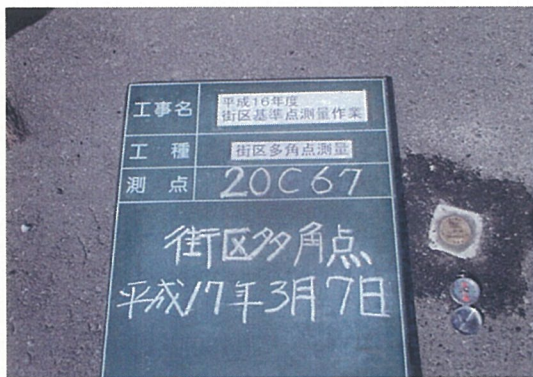 工事名
平成16年度
街区基準点測量作業
工種
街区多角点測量
測点
20C67
街区多角点
平成17年3月7日